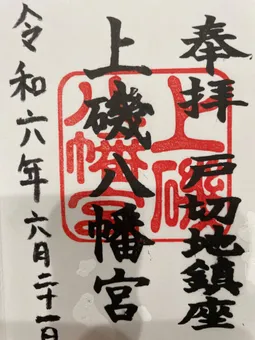 奉拝 戸切地鎮座
上磯八幡宮
令和六年 六月二十一日
上磯八幡宮